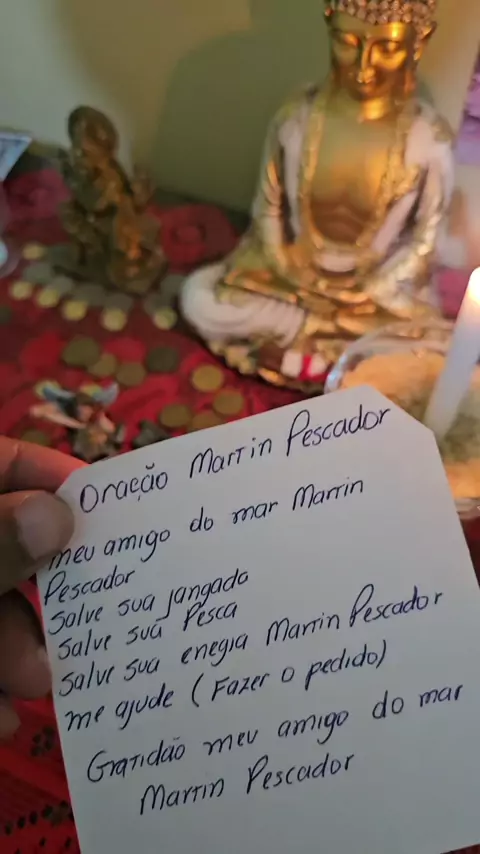 Oração Martin Pescador
meu amigo do mar Martin
Pescador
Salve sua jangada
Salve sua Pesca
Salve sua enegia Martin Pescador
me ajude (Fazer o pedido)
Gratidão meu amigo do mar
Martin Pescador